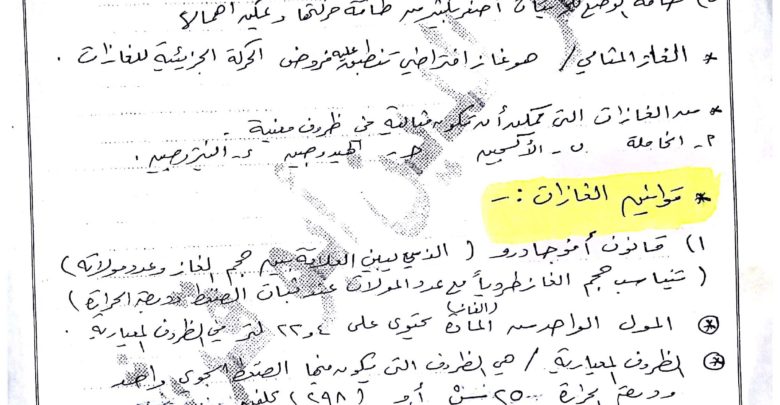 طاقة الوضع للجسيمات أصغر بكثير من طاقة حركتها ويمكن اهمالها
* الغاز المثالي / هو غاز افتراضي تنطبق عليه فروض الحركة الجزيئية للغازات .
* من الغازات التي يمكن أن تكون مثالية في ظروف معينة .
٢- الخاملة ب- الأكسجين ج- الهيدروجين د- النيتروجين .
* قوانين الغازات :-
١) قانون أفوجادرو ( الذي يبين العلاقة بين حجم الغاز وعدد مولاته )
( تتناسب حجم الغاز طردياً مع عدد المولات عند ثبات الضغط ودرجة الحرارة )
* المول الواحد من المادة (الغاز) يحتوي على ٢٢٫٤ لتر في الظروف المعيارية .
* الظروف المعيارية / هي الظروف التي يكون فيها الضغط الجوي واحد
ودرجة الحرارة ٢٥ أو (٢٩٨)